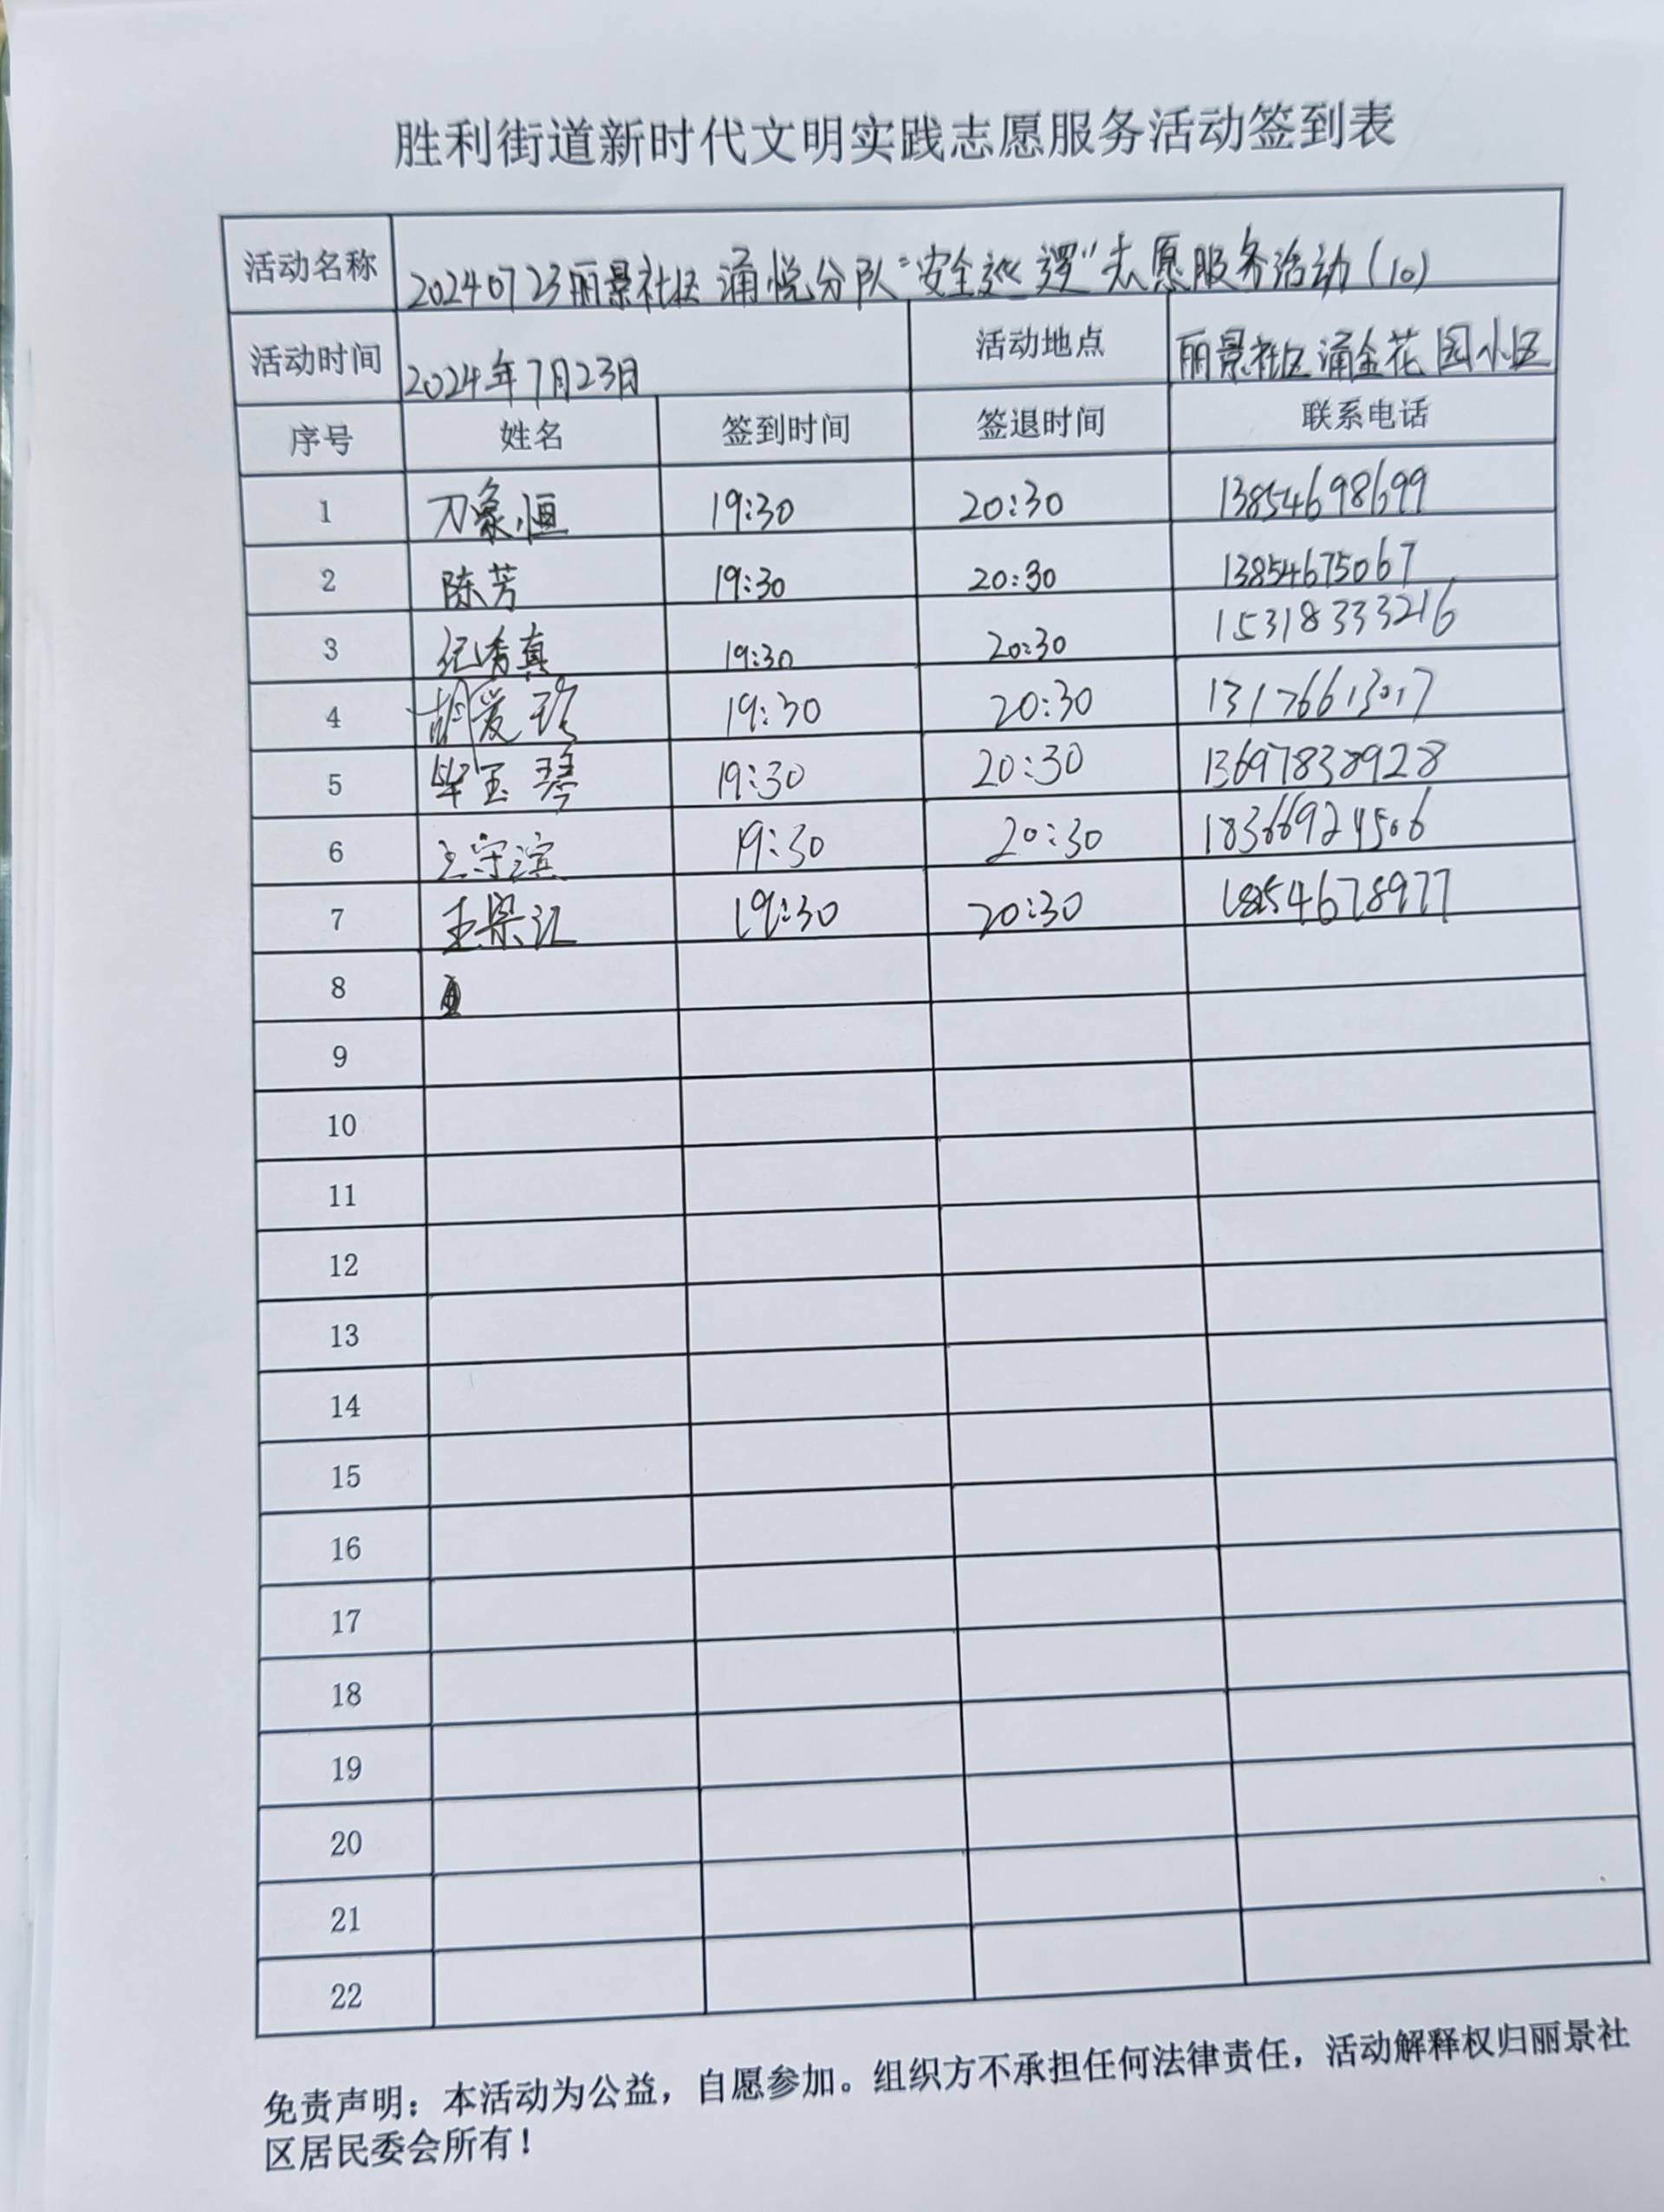 胜利街道新时代文明实践志愿服务活动签到表
活动名称 20240723丽景社区涌悦分队“安全巡逻”志愿服务活动(10)
活动时间 2024年7月23日 活动地点 丽景社区涌金花园小区
序号 姓名 签到时间 签退时间 联系电话
1 19:30 20:30 13854698699
2 陈芳 19:30 20:30 13854675067
3 纪秀真 19:30 20:30 15318333216
4 胡爱玲 19:30 20:30 13176613017
5 毕玉琴 19:30 20:30 13697838928
6 王守滨 19:30 20:30 18366924506
7 王梁江 19:30 20:30
8
9
10
11
12
13
14
15
16
17
18
19
20
21
22
免责声明：本活动为公益，自愿参加。组织方不承担任何法律责任，活动解释权归丽景社
区居民委会所有！